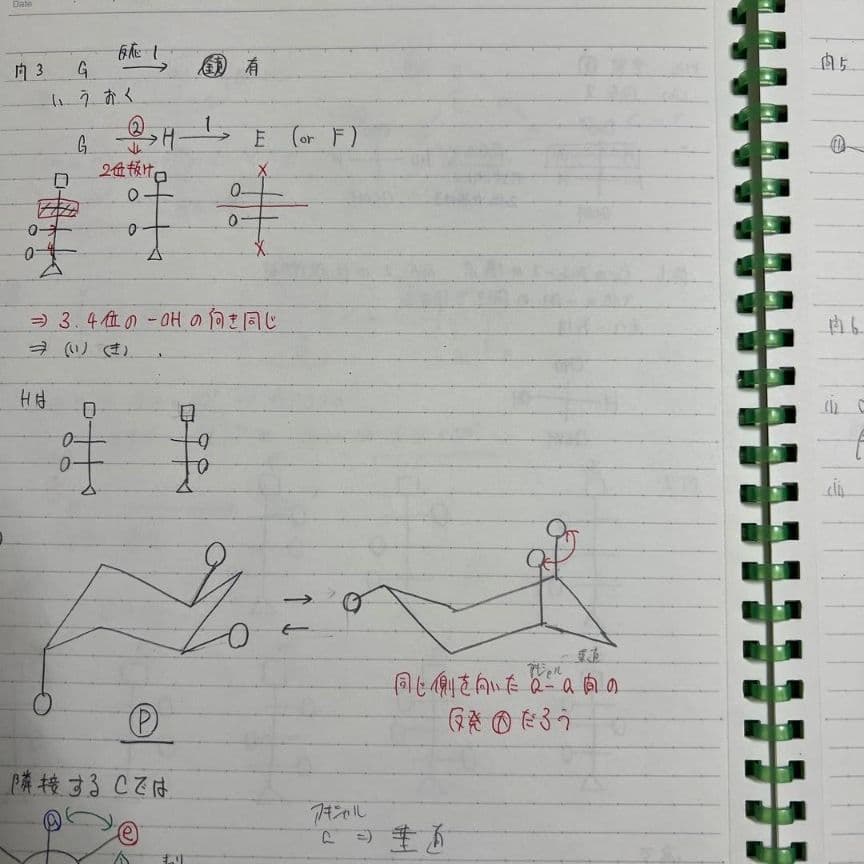 Date
問3 G 反応1 → 鏡 有
い う お く
G ②→ H 1→ E (or F)
2位抜け
⇒ 3.4位の-OHの向き同じ
⇒ (い) (き)
Hは
⇒ 垂直
アキシャル
同じ側を向いた a-a間の
反発 大 だろう
P
隣接するCでは
アキシャル
a ⇒ 垂直
a e
問5
問6
(i)
(ii)